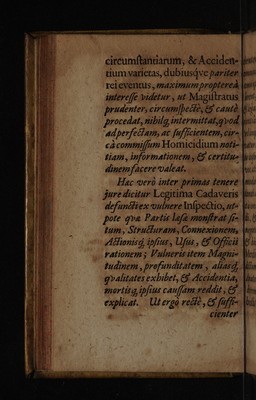 circumstantiarum, & Acciden-
tium varietas, dubiusqve pariter
rei eventus, maximum propterea
interesse videtur, ut Magistratus
prudenter, circumspectè, & cautè
procedat, nihilq; intermittat, qvod
ad perfectam, ac sufficientem, cir-
cà commissum Homicidium noti-
tiam, informationem, & certitu-
dinem facere valeat.
Hac verò inter primas tenere
jure dicitur Legitima Cadaveris
defuncti ex vulnere Inspectio, ut-
pote qvæ Partis læsæ monstrat si-
tum, Structuram, Connexionem,
Actionisq; ipsius, Usus, & Officii
rationem; Vulneris item Magni-
tudinem, profunditatem, aliasq;
qvalitates exhibet, & Accidentia,
mortisq; ipsius caussam reddit, &
explicat. Ut ergò rectè, & suffi-
cienter